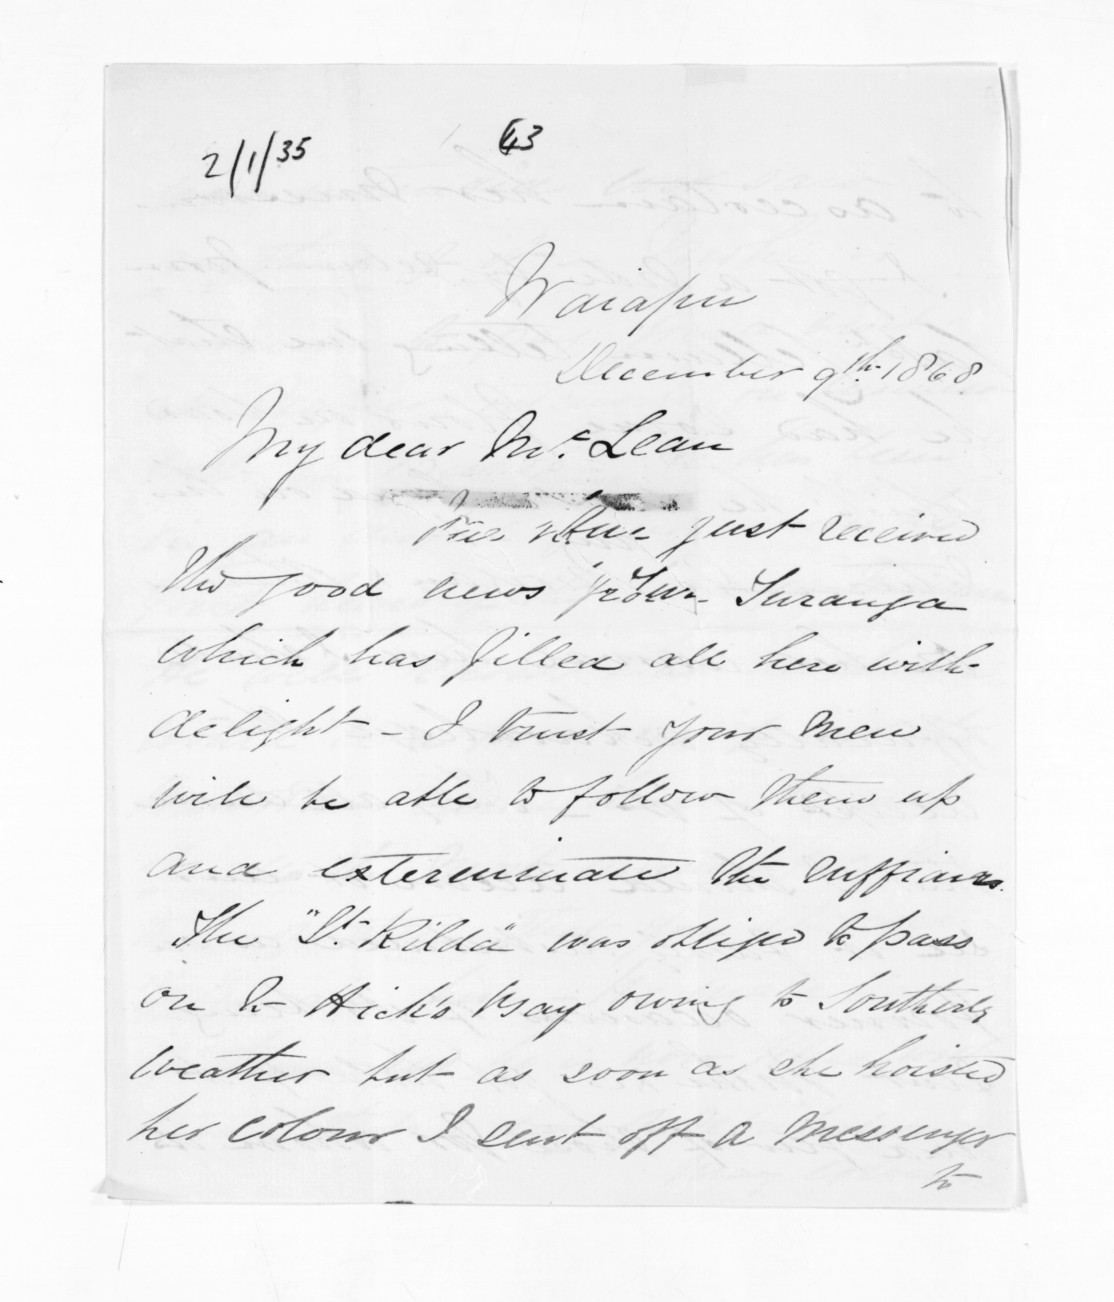 2/1/35
43
Waiapu
December 9th. 1868
My dear Mc.Lean
We have just received
the good news from Turanga
which has filled all here with
delight - I trust your men
will be able to follow them up
and exterminate the ruffians.
The "St. Kilda" was obliged to pass
on to Hick's Bay owing to Southerly
weather but as soon as she hoisted
her colour I sent off a messenger
to